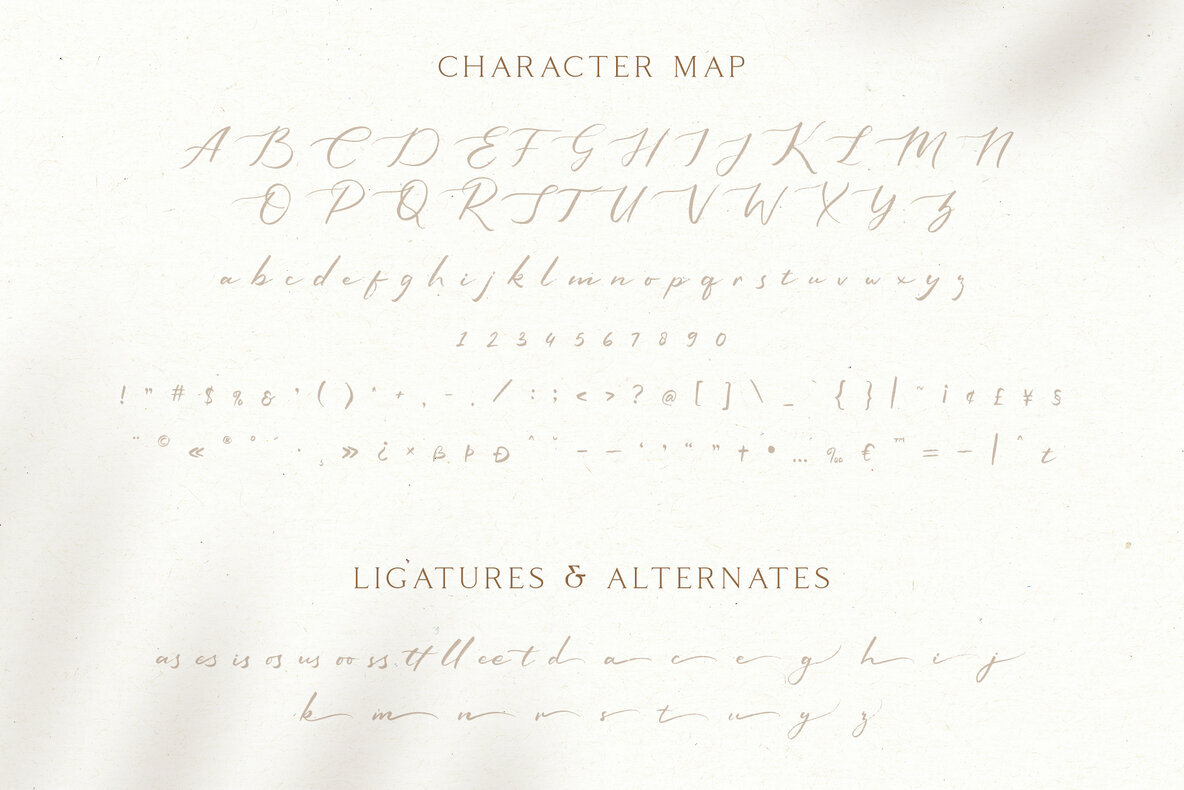 CHARACTER MAP
A B C D E F G H I J K L M N
O P Q R S T U V W X Y Z
a b c d e f g h i j k l m n o p q r s t u v w x y z
1 2 3 4 5 6 7 8 9 0
! " # $ % & ' ( ) * + , - . / : ; < > ? @ [ ] \ _ ` { } | ~ ¡ ¢ £ ¥ §
¨ © « ® ° ´ · ¸ » ¿ × ß Þ Ð ˆ ˘ – — ‘ ’ “ ” † • … ‰ € ™ = − | ^ t
LIGATURES & ALTERNATES
as es is os us oo ss tt ll ee t d a c e g h i j
k m n r s t u y z